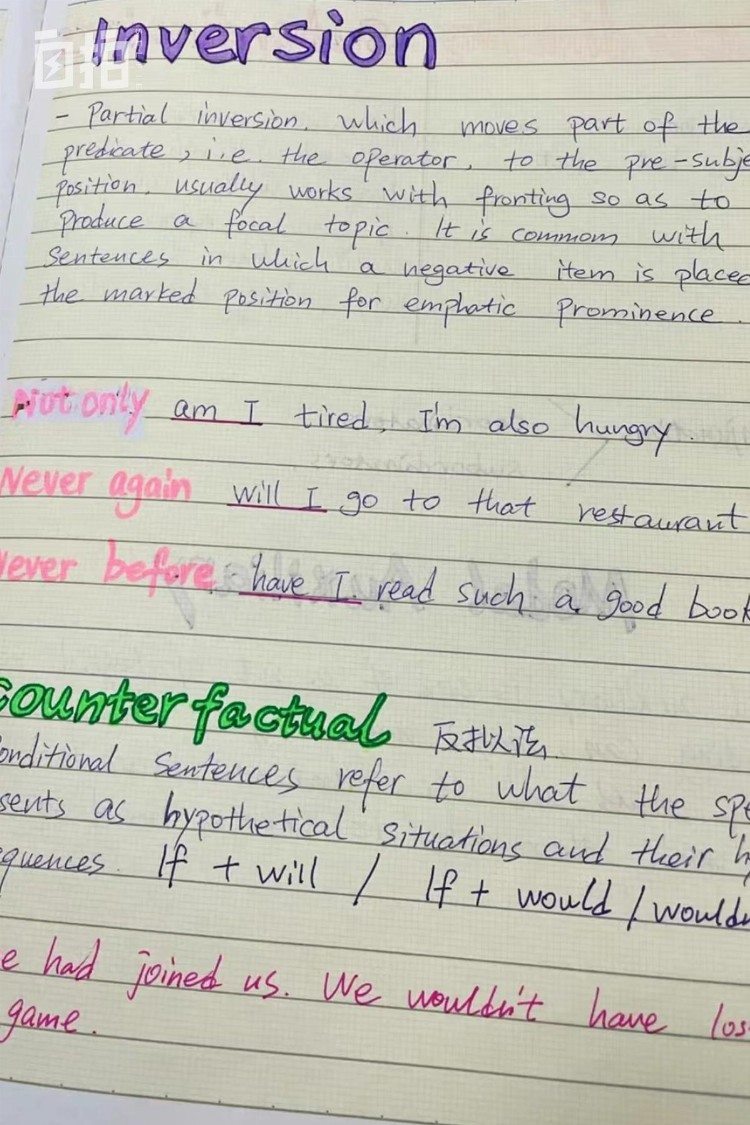 自拍
Inversion
- Partial inversion, which moves part of the
predicate, i.e. the operator, to the pre-subje
position, usually works with fronting so as to
produce a focal topic. It is commom with
sentences in which a negative item is placed
the marked position for emphatic prominence.
Not only am I tired, I'm also hungry.
Never again will I go to that restaurant
Never before have I read such a good book
Counterfactual 反拟以法
onditional sentences refer to what the spe
sents as hypothetical situations and their h
quences. If + will / If + would / wouldn
e had joined us. We wouldn't have los
game.